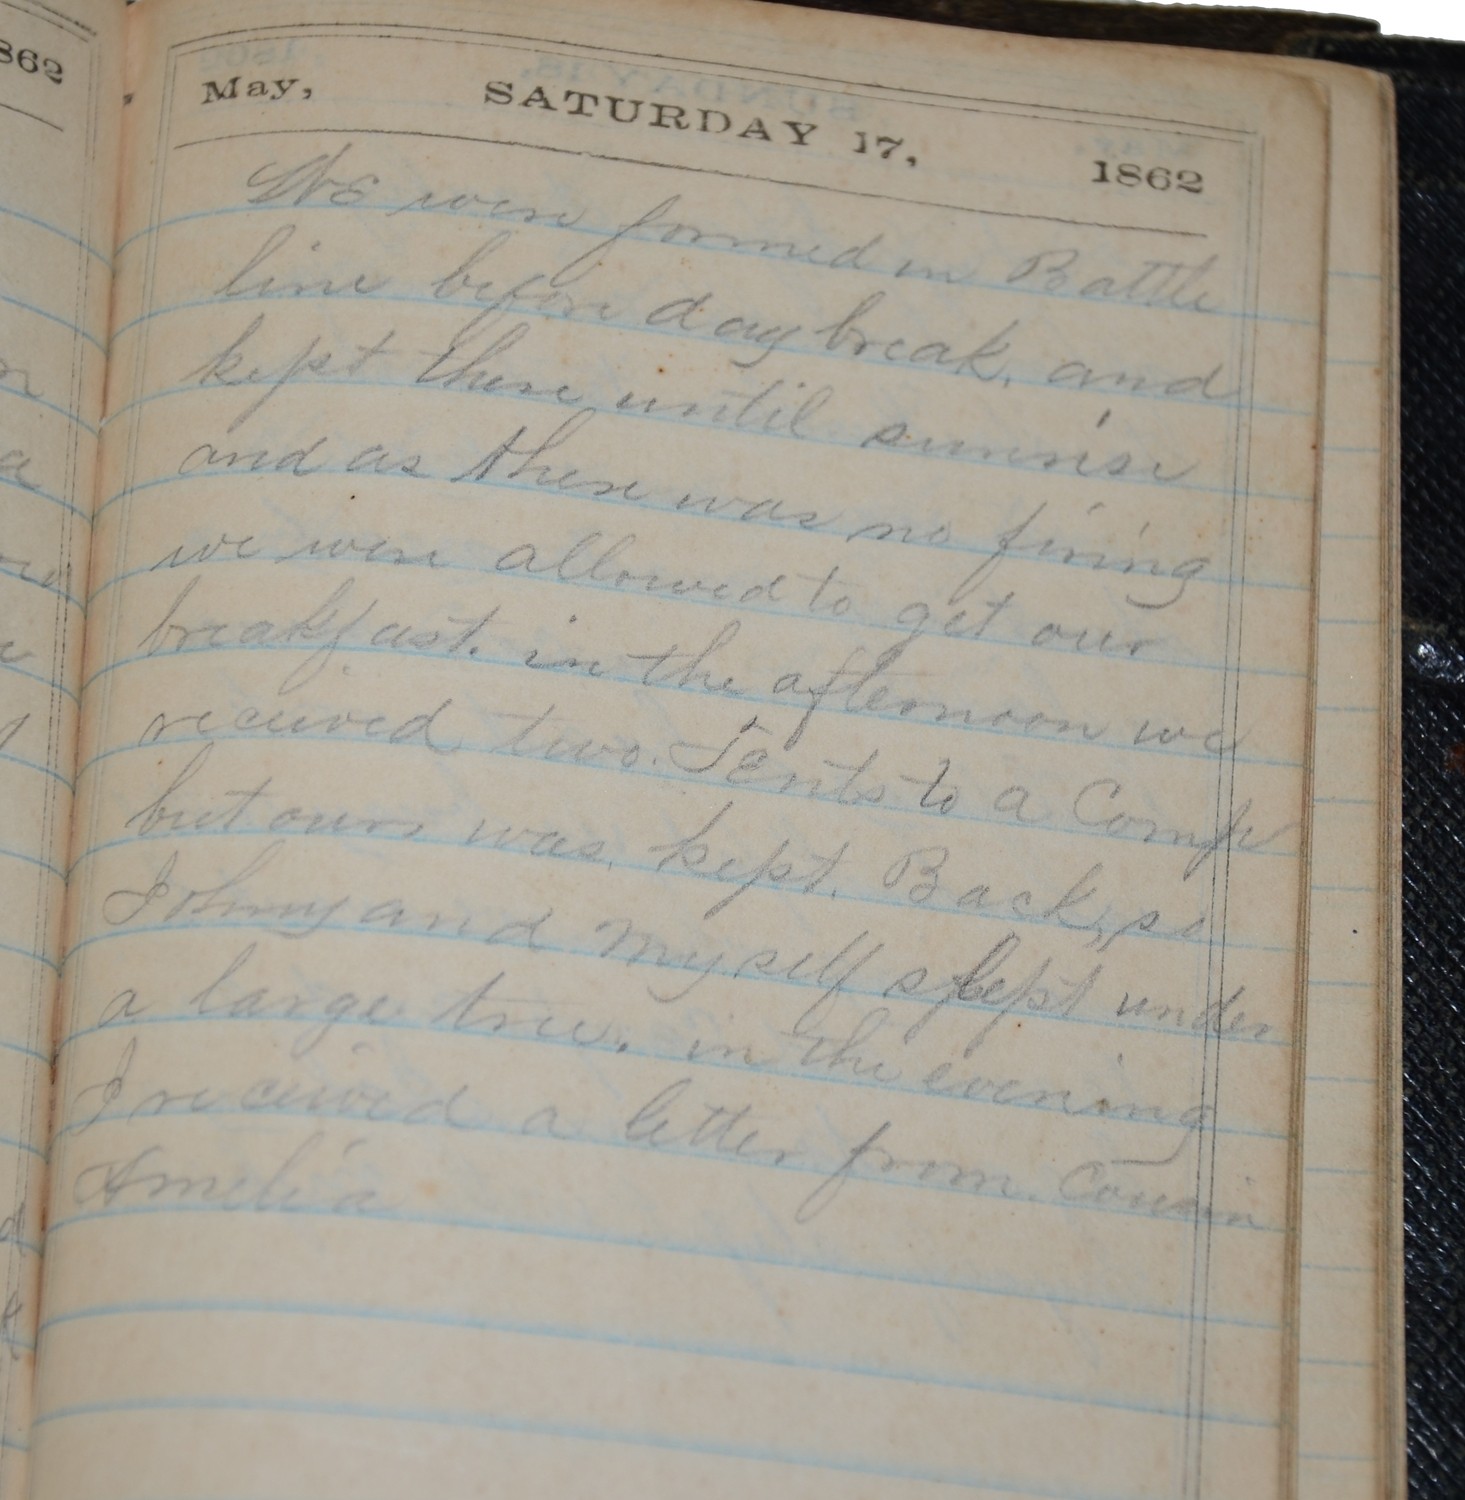 May, SATURDAY 17, 1862
WE were formed in Battle
line before day break, and
kept there until sunrise
and as there was no firing
we were allowed to get our
breakfast. in the afternoon we
received two. Tents to a Comp
but ours was, kept. Back, so
Johnny and myself slept under
a large tree. in the evening
I received a letter from Cousin
Amelia